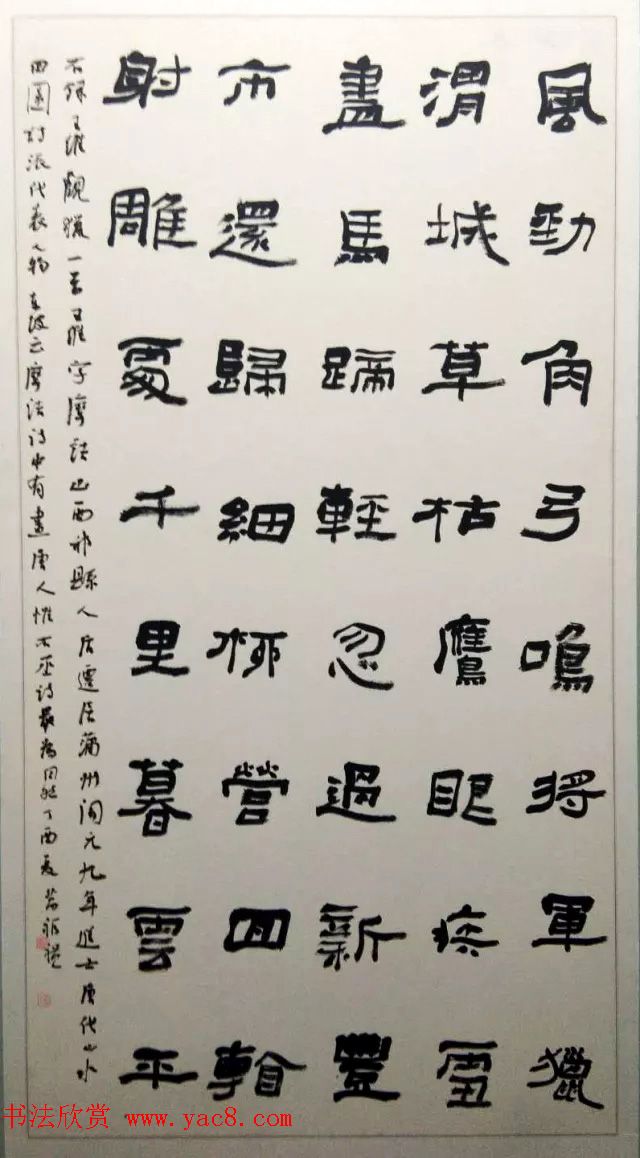 風勁角弓鳴將軍獵
渭城草枯鷹眼疾雪
盡馬蹄輕忽過新豐
市還歸細柳營回看
射雕處千里暮雲平
右錄王維觀獵一首王維字摩詰山西祁縣人后遷居蒲州開元九年進士唐代山水
田園詩派代表人物東坡云摩詰詩中有畫唐人惟右丞詩最為自然丁酉夏
书法欣赏 www.yac8.com